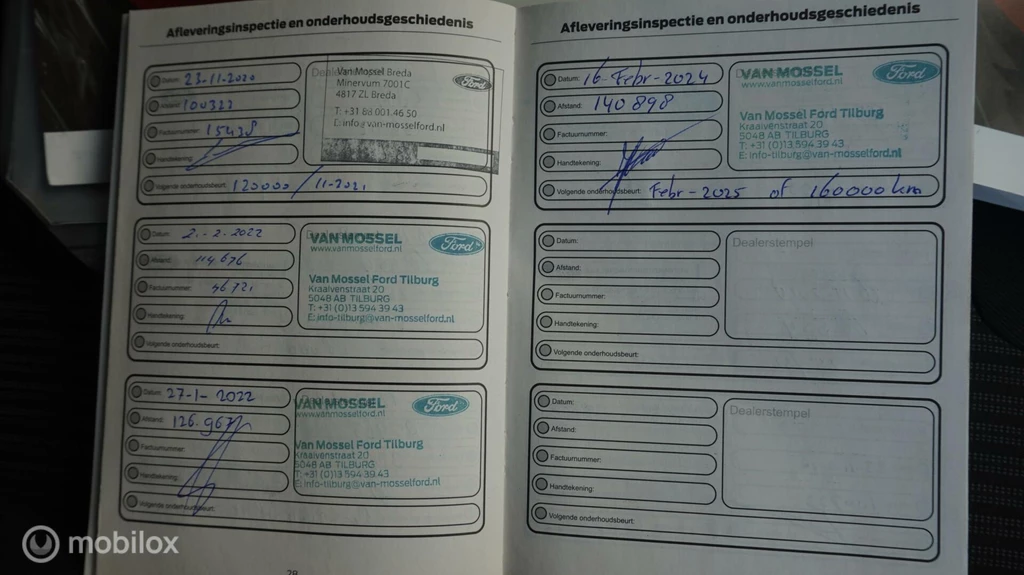 Afleveringsinspectie en onderhoudsgeschiedenis
Datum: 23-11-2020
Afstand: 100322
Factuurnummer: 15438
Handtekening:
Volgende onderhoudsbeurt: 120000 / 11-2021
Van Mossel Breda
Minervum 7001C
4817 ZL Breda
T: +31 88 001 46 50
E: info@van-mosselford.nl
Ford
Datum: 2-2-2022
Afstand: 114.676
Factuurnummer:
Handtekening:
Volgende onderhoudsbeurt:
VAN MOSSEL
www.vanmosselford.nl
Ford
Van Mossel Ford Tilburg
Kraaivenstraat 20
5048 AB TILBURG
T: +31 (0)13 594 39 43
E: info-tilburg@van-mosselford.nl
Datum: 27-1-2022
Afstand: 126.967
Factuurnummer:
Handtekening:
Volgende onderhoudsbeurt:
VAN MOSSEL
www.vanmosselford.nl
Ford
Van Mossel Ford Tilburg
Kraaivenstraat 20
5048 AB TILBURG
T: +31 (0)13 594 39 43
E: info-tilburg@van-mosselford.nl
28
Afleveringsinspectie en onderhoudsgeschiedenis
Datum: 16-Febr-2024
Afstand: 140898
Factuurnummer:
Handtekening:
Volgende onderhoudsbeurt: Febr-2025 of 160000km
VAN MOSSEL
www.vanmosselford.nl
Ford
Van Mossel Ford Tilburg
Kraaivenstraat 20
5048 AB TILBURG
T: +31 (0)13 594 39 43
E: info-tilburg@van-mosselford.nl
Datum:
Afstand:
Factuurnummer:
Handtekening:
Volgende onderhoudsbeurt:
Dealerstempel
Datum:
Afstand:
Factuurnummer:
Handtekening:
Volgende onderhoudsbeurt:
Dealerstempel
mobilox